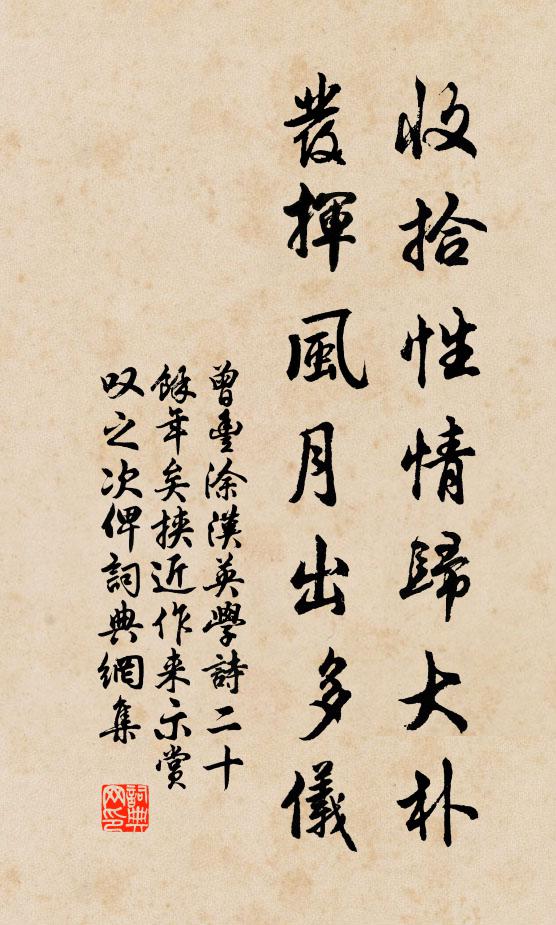 收拾性情歸大朴
發揮風月出多儀
曾豐涂漢英學詩二十
餘年矣挾近作来示賞
叹之次俾詞典網集
詞典网印